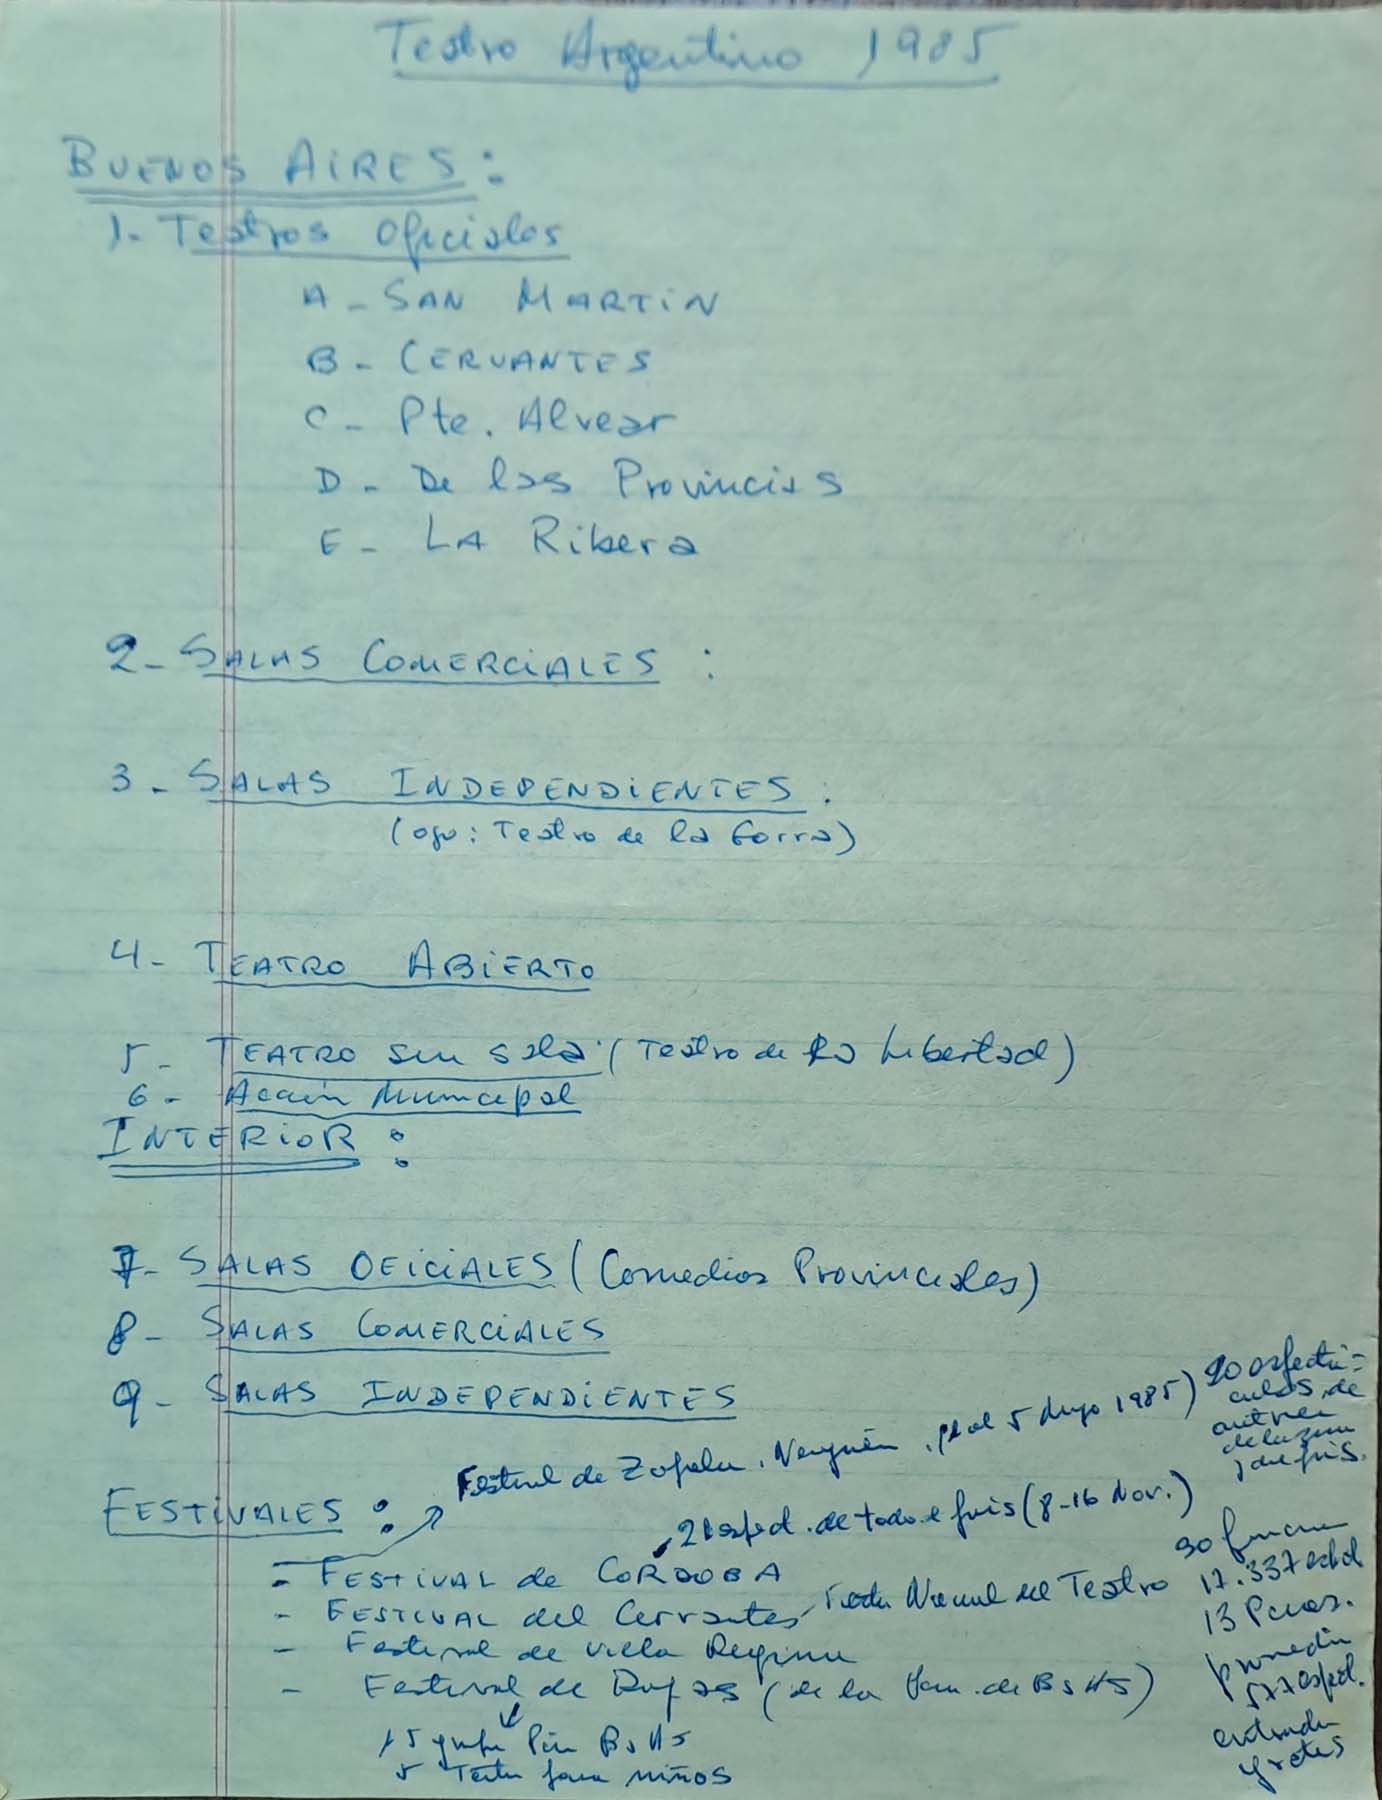 Teatro Argentino 1985
BUENOS AIRES:
1- Teatros Oficiales
A - SAN MARTIN
B - CERVANTES
C - Pte. Alvear
D - De las Provincias
E - LA Ribera
2- SALAS COMERCIALES :
3- SALAS INDEPENDIENTES:
(ojo: Teatro de la Gorra)
4- TEATRO ABIERTO
5- TEATRO sin sala (Teatro de la Libertad)
6- Acción Municipal
INTERIOR:
7- SALAS OFICIALES (Comedias Provinciales)
8- SALAS COMERCIALES
9- SALAS INDEPENDIENTES
Festival de Zapala, Neuquén, al 5 Mayo 1985) 20 espectá=
culos de
autores
de la zona
y del país.
FESTIVALES:
21 espect. de todo el país (8-16 Nov.)
- FESTIVAL de CORDOBA
- FESTIVAL del Cervantes, Fiesta Nacional del Teatro
- Festival de Villa Regina
- Festival de (de la Prov. de Bs AS)
15 grupos Pcia Bs AS
5 Teatro para niños
30 funciones
17.337 espect
13 Pcias.
promedio
577 espect.
entrada
gratis